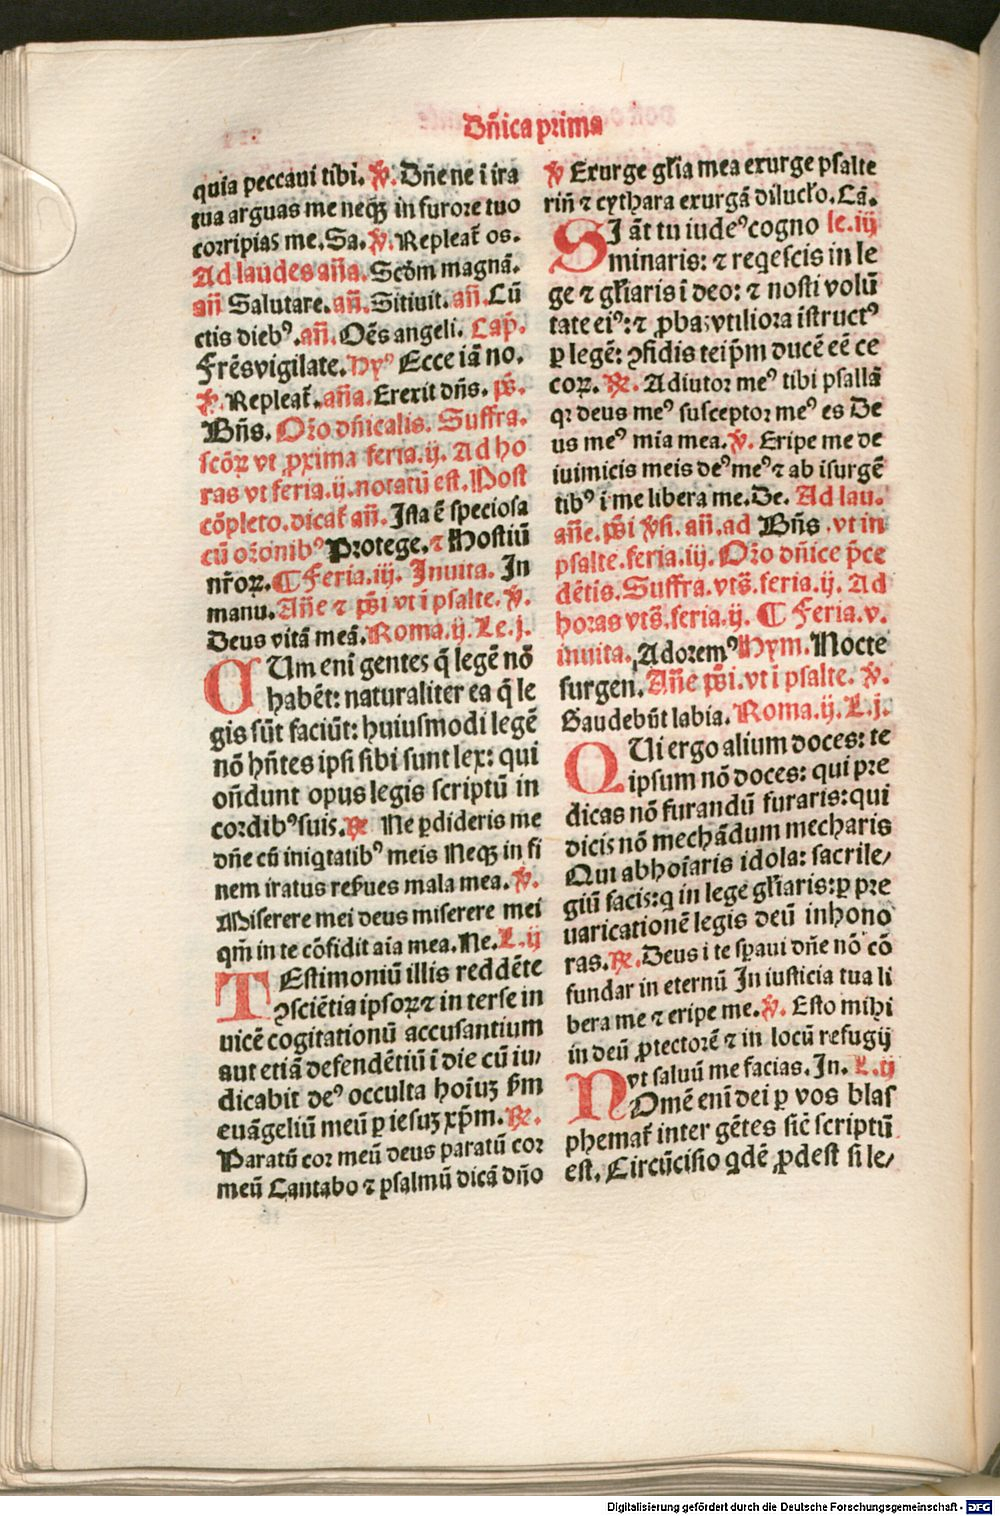 Dñica prima
quia peccaui tibi. ꝟ. Dñe ne i ira
tua arguas me neqꝫ in furore tuo
corripias me. Sa. ꝟ. Repleat̃ os.
Ad laudes aña. Scðm magnã.
añ Salutare. añ. Sitiuit. añ. Cũ
ctis diebꝰ. añ. Oẽs angeli. Cap̃.
Fr̃es vigilate. Hyꝰ Ecce iã no.
ꝟ. Repleat̃. aña. Erexit dñs. p̃s.
Bñs. Or̃o dñicalis. Suffra.
scõꝝ vt ꝓxima feria. ij. Ad ho
ras vt feria. ij. notatũ est. Post
cõpleto. dicat̃ añ. Ista ẽ speciosa
cũ or̃onibꝰ Protege. ⁊ Hostiũ
nr̃oꝝ. ¶ Feria. iij. Inuita. In
manu. Añe ⁊ p̃si vt ĩ psalte. ꝟ.
Deus vitã meã. Roma. ij. Le. j.
CUm enĩ gentes q̃ legẽ nõ
habẽt: naturaliter ea q̃ le
gis sũt faciũt: huiusmodi legẽ
nõ hñtes ipsi sibi sunt lex: qui
oñdunt opus legis scriptũ in
cordibꝰ suis. ꝶ Ne ꝑdideris me
dñe cũ iniqtatibꝰ meis Neqꝫ in fi
nem iratus res̃ues mala mea. ꝟ.
Miserere mei deus miserere mei
qm̃ in te cõfidit aĩa mea. Ne. L. ij
TEstimoniũ illis reddẽte
ꝯsciẽtia ipsoꝝ ⁊ in terse in
uicẽ cogitationũ accusantium
aut etiã defendẽtiũ ĩ die cũ iu⸗
dicabit deꝰ occulta hoĩuꝫ s̃m
euãgeliũ meũ ꝑ iesuꝫ xp̃m. ꝶ.
Paratũ cor meũ deus paratũ cor
meũ Cantabo ⁊ psalmũ dicã dño
ꝟ Exurge gl̃ia mea exurge psalte
riñ ⁊ cythara exurgã dilucl̃o. Cã.
SI ãt tu iudeꝰ cogno le. iij
minaris: ⁊ reqescis in le
ge ⁊ gl̃iaris ĩ deo: ⁊ nosti volũ
tate eiꝰ: ⁊ ꝓbas vtiliora ĩstructꝰ
ꝑ legẽ: ꝯfidis teip̃m ducẽ eẽ ce
coꝝ. ꝶ. Adiutor meꝰ tibi psallã
qꝛ deus meꝰ susceptor meꝰ es De
us meꝰ mĩa mea. ꝟ. Eripe me de
iuimicis meis deꝰ meꝰ ⁊ ab ĩsurgẽ
tibꝰ ĩ me libera me. De. Ad lau.
añe. p̃si ꝟsi. añ. ad Bñs . vt in
psalte. feria. iij. Or̃o dñice p̃ce
dẽtis. Suffra. vts̃. feria. ij. Ad
horas vts̃. feria. ij. ¶ Feria. v.
inuita. Adoremꝰ Hym. Nocte
surgen. Añe p̃si. vt ĩ psalte. ꝟ.
Gaudebũt labia. Roma. ij. L. j.
QUi ergo alium doces: te
ipsum nõ doces: qui pre
dicas nõ furandũ furaris: qui
dicis nõ mechãdum mecharis
Qui abhoĩaris idola: sacrile⸗
giũ facis: q in lege gl̃iaris: ꝑ pre
uaricationẽ legis deũ inhono
ras. ꝶ. Deus i te sꝑaui dñe nõ cõ
fundar in eternũ In iusticia tua li
bera me ⁊ eripe me. ꝟ. Esto mihi
in deũ ꝓtectorẽ ⁊ in locũ refugij
vt saluũ me facias. In. L. ij
NOmẽ enĩ dei ꝑ vos blas
phemat̃ inter gẽtes sic̃ scriptũ
est. Circũcisio qdẽ ꝓdest si le⸗
Digitalisierung gefördert durch die Deutsche Forschungsgemeinschaft - DFG